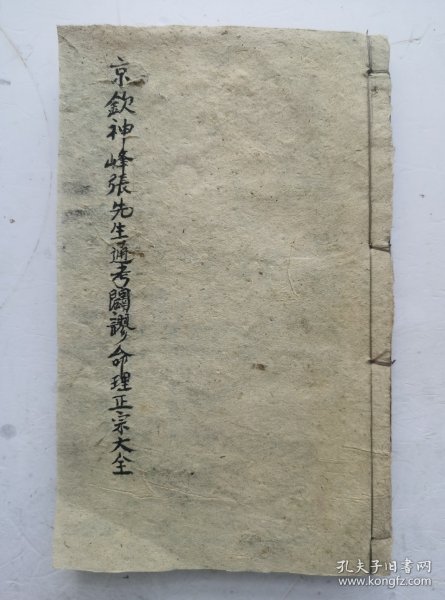 京欽神峰張先生通考闢謬命理正宗大全
孔夫子旧书网
www.kongfz.com